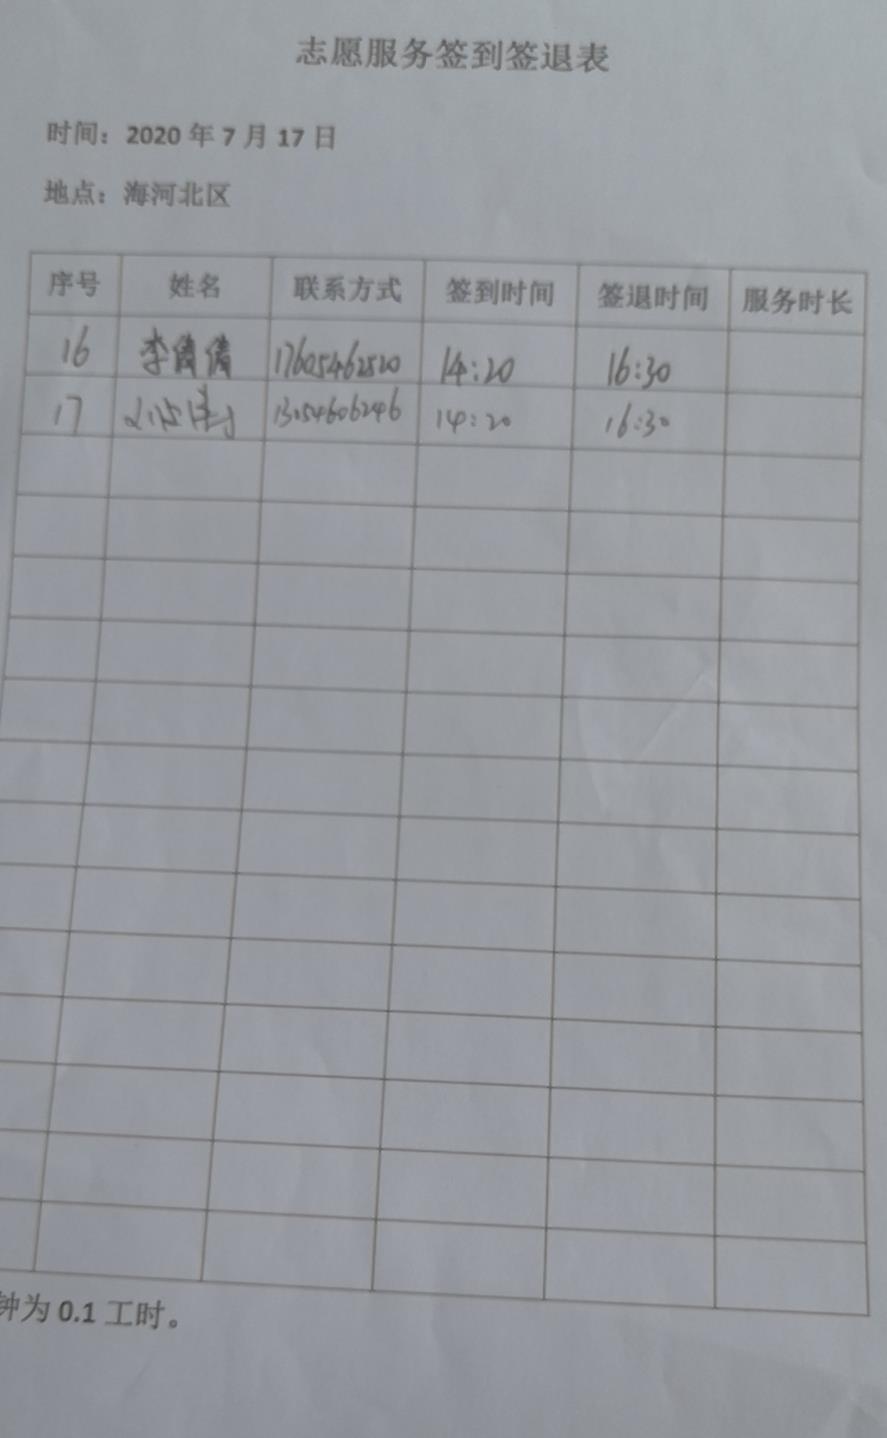 志愿服务签到签退表
时间：2020 年 7 月 17 日
地点：海河北区
序号 姓名 联系方式 签到时间 签退时间 服务时长
16 李倩倩 17605462520 14:20 16:30
17 13054606246 14:20 16:30
钟为 0.1 工时。